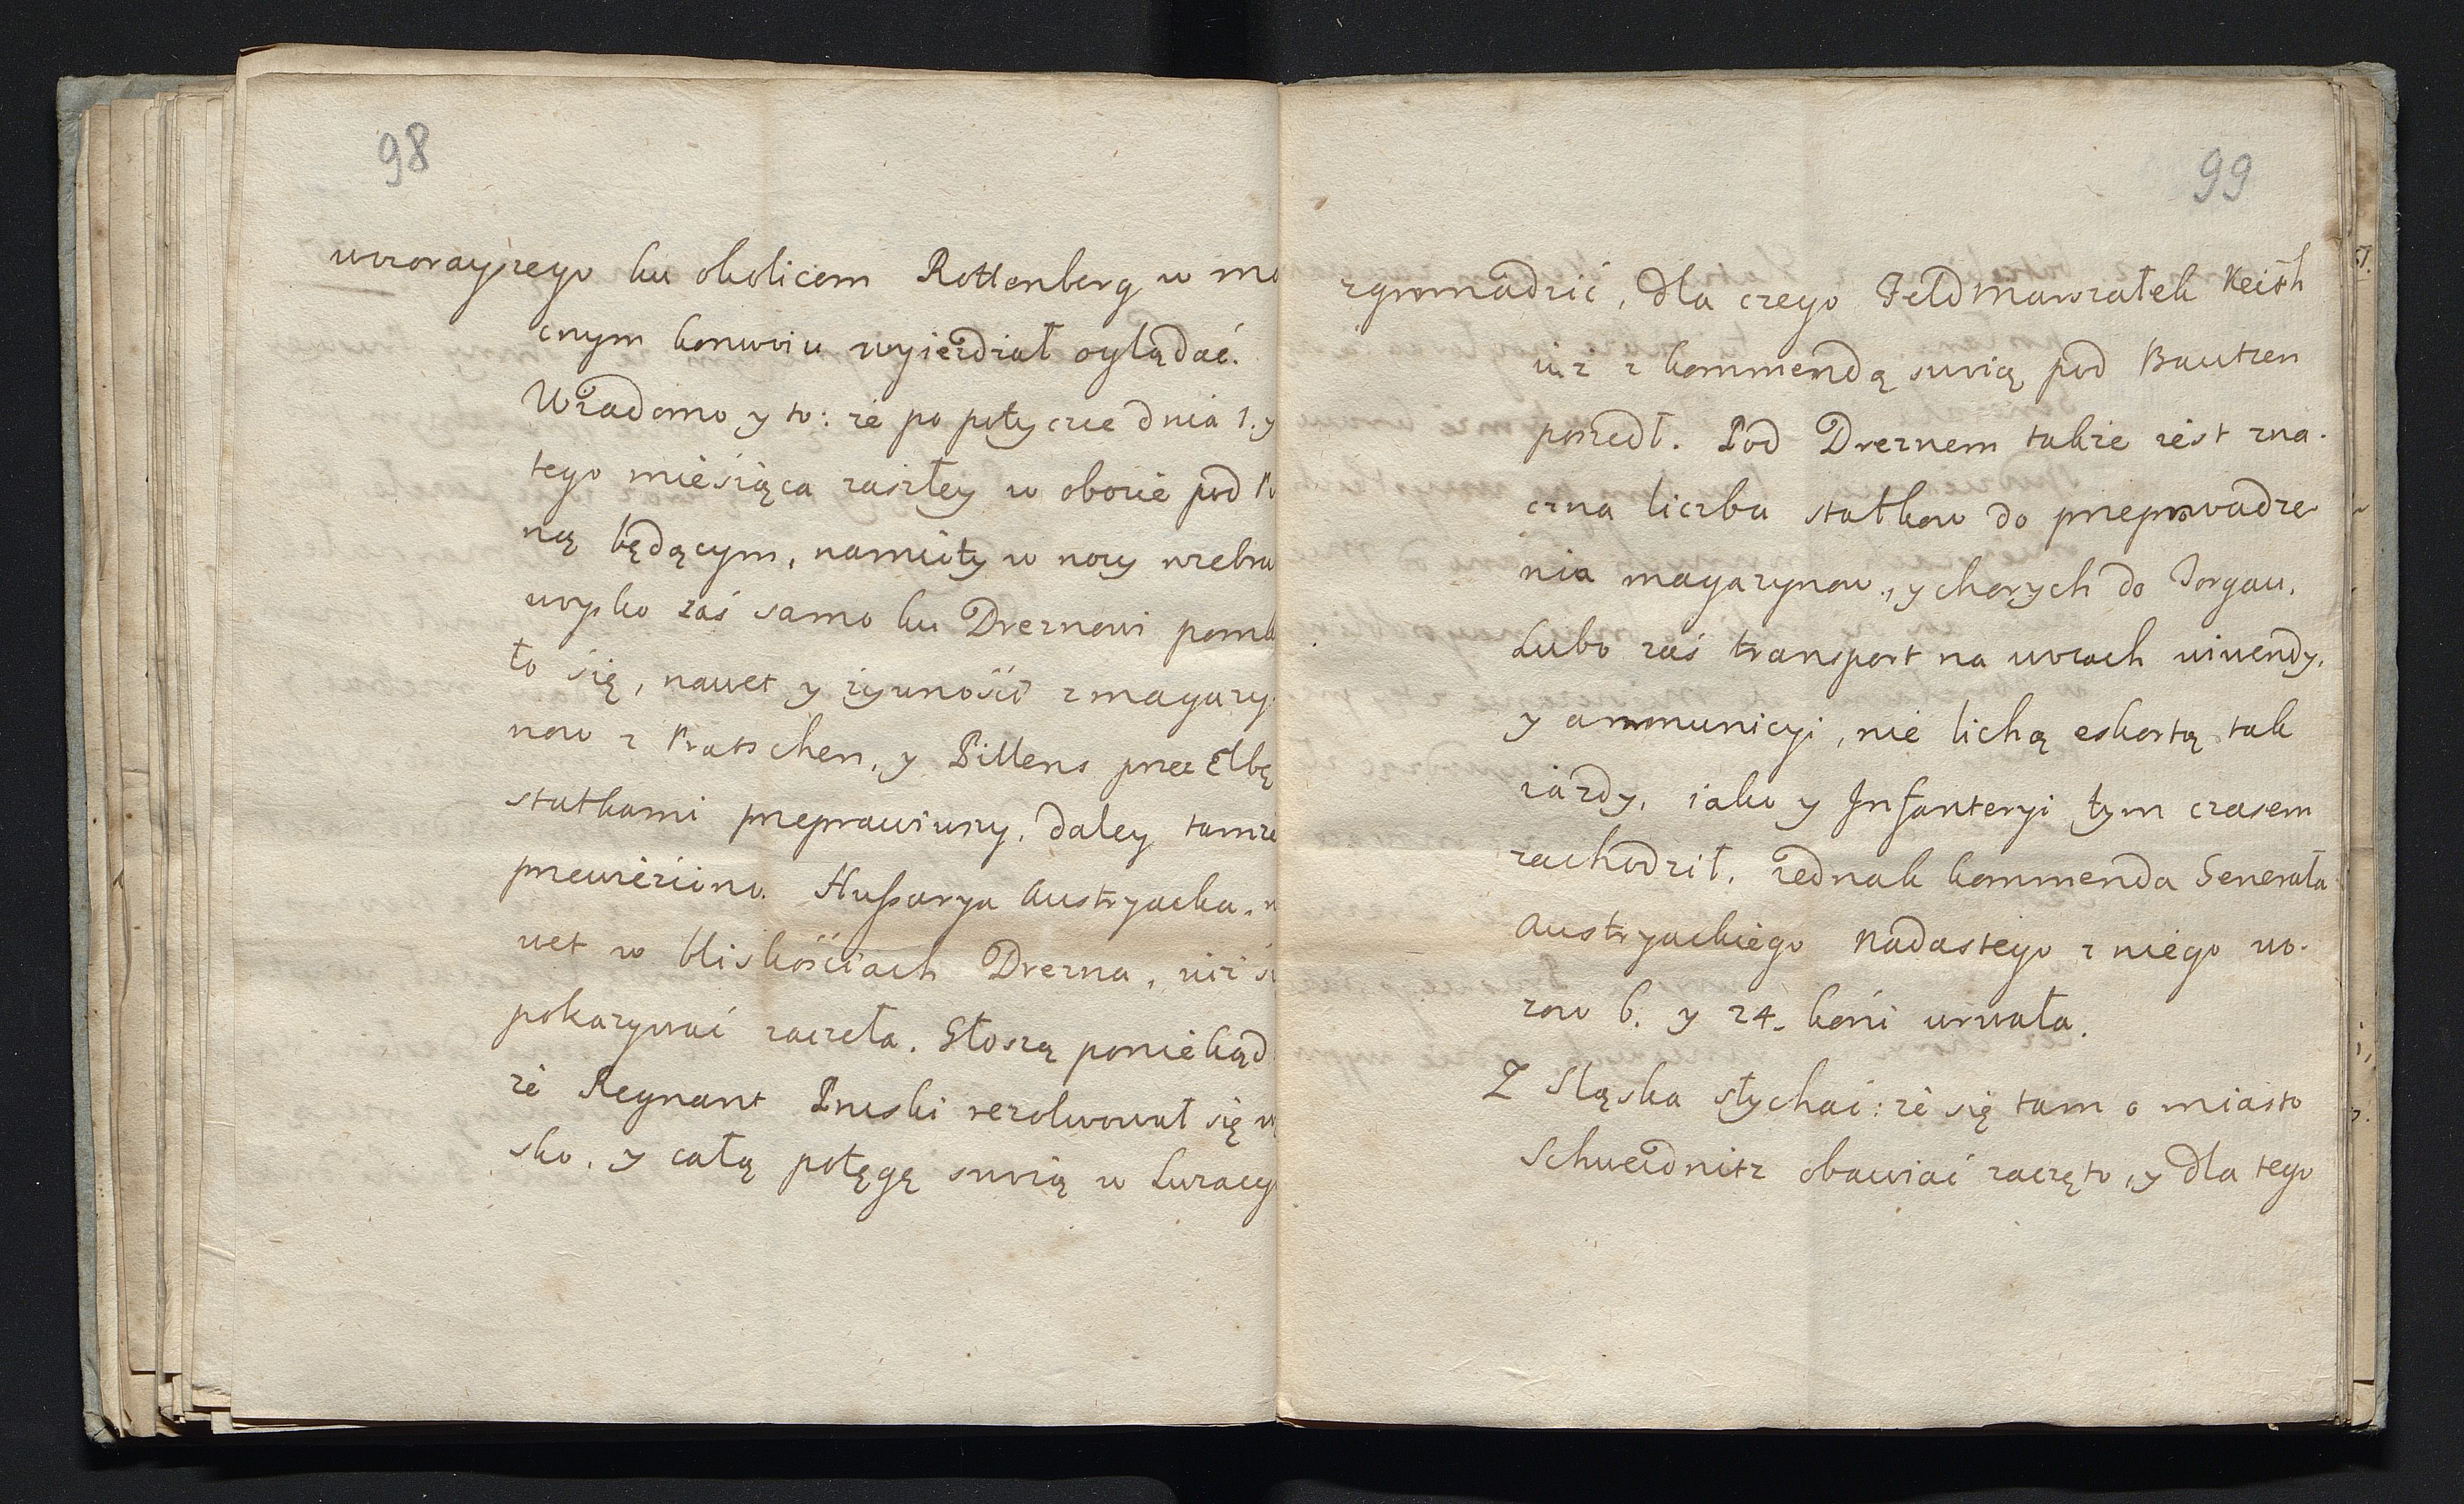 98
wczorayszego ku okolicom Rottenberg w mo
cnym konwoiu wyieżdiał oglądać.
Wiadomo y to: że po potyczce dnia 1. y
tego miesiąca zaszłey w obozie pod
ną będącym, namioty w nocy zebra
woysko zaś samo ku Dreznowi pom
ło się, nawet y żywność z magazy
now z Kratschen, y Pillens przez Elbę
statkami przeprawiwszy, daley tamże
przewieziono. Hussarya Austryacka, n
wet w bliskościach Drezna, iuż si
pokazywać zaczeła. Głoszą poniekąd
że Regnant Pruski rezolwował się w
sko, y całą potęgę swoią w Luzacy
99
zgromadzić, dla czego Feldmarszałek Keith
iuż z kommendą swoią pod Bautzen
poszedł. Pod Dreznem takze iest zna-
czna liczba statkow do przeprowadze
nia magazynow, y chorych do Torgau.
Lubo zaś transport na wozach viwendy,
y ammunicyi, nie lichą eskortą tak
iazdy, iako y Infanteryi tym czasem
zachodził, iednak kommenda Generała
Austryackiego Nadastego z niego wo-
zow 6. y 24. koni urwała.
Z Sląska słychać: że się tam o miasto
Schweidnitz obawiać zaczęto, y dla tego